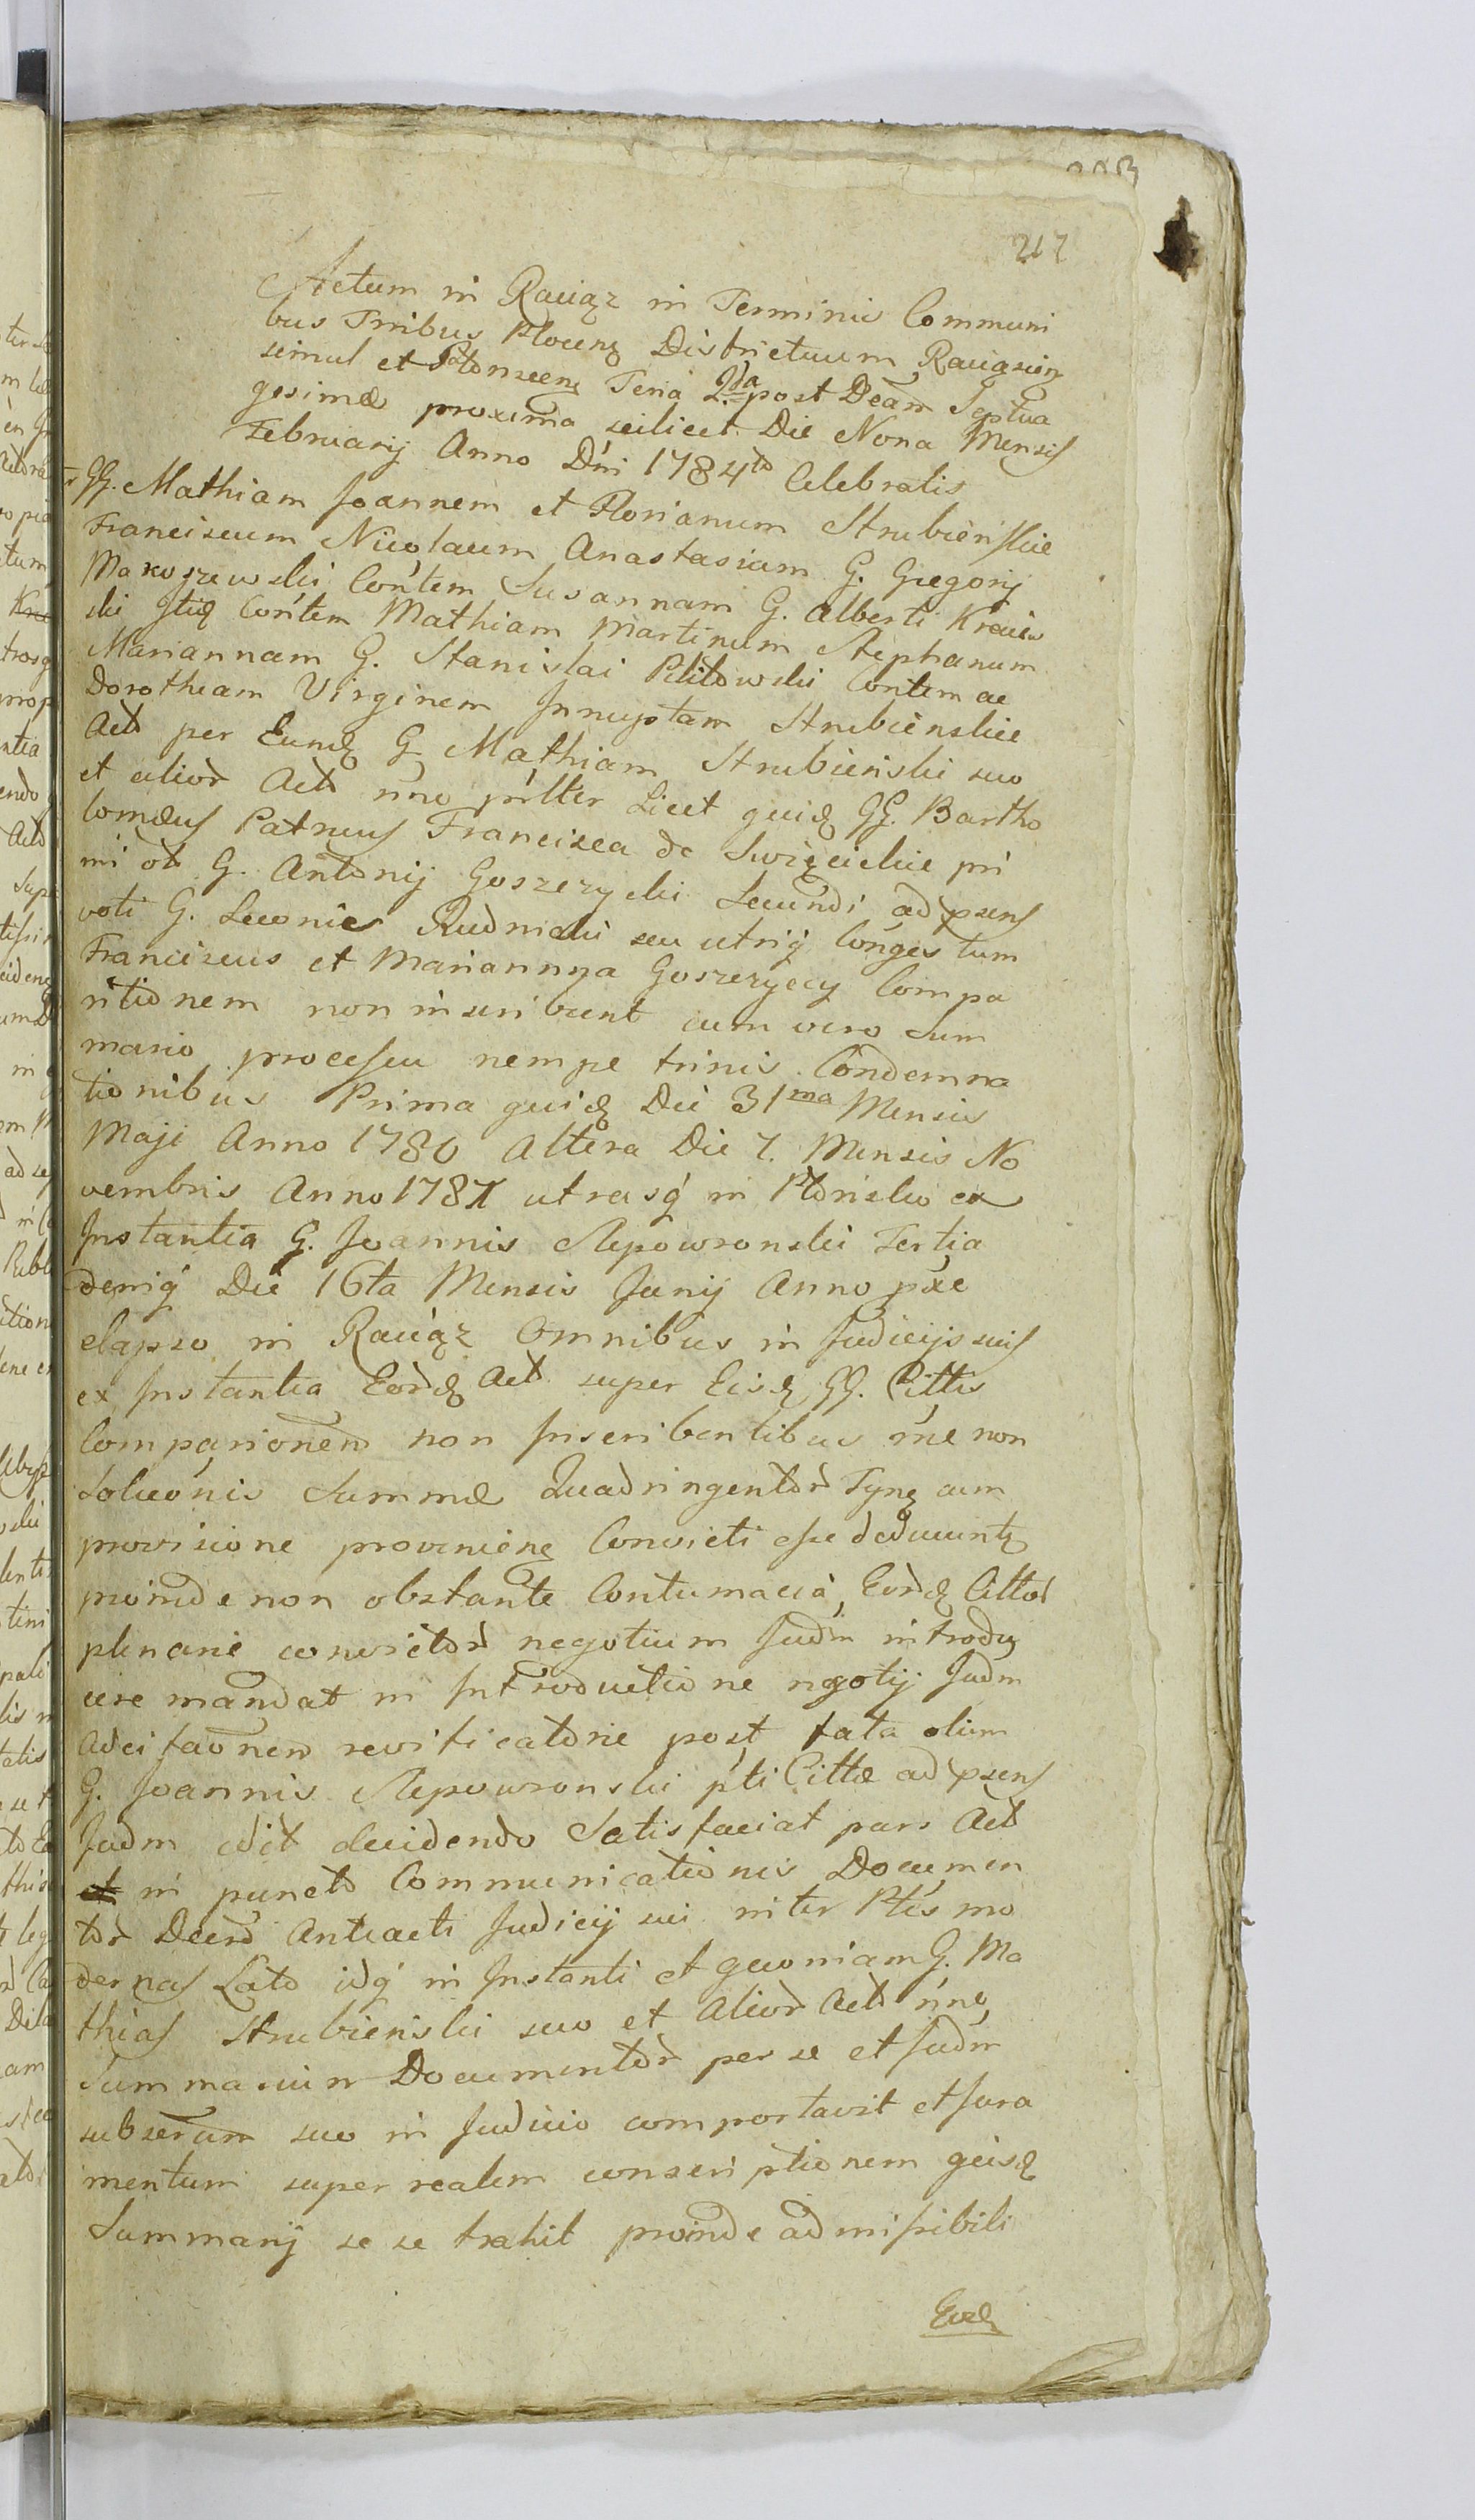 217
Actum in Raciąz in Terminis Communi
bus Trribus Plocenꝫ Districtuum Raciąsienꝫ
simul et Płonscenꝫ Feria 2da post Dcam Septua
gesimæ proxima scilicet Die Nona Mensis
Februarij Anno Dni 1784to Celebratis
GG. Mathiam Joannem et Florianum Strubienskie
Franciscum Nicolaum Anastasiam G. Gregorij
Makoszewski Contem Susannam G. Alberti Kraiew
ski Contem Mathiam Martinum Stephanum
Mariannam G. Stanislai Pelitowski Contem ac
Dorotheam Virginem Innuptam Strubienskie
Act per Eundꝫ G. Mathiam Strubienski suo
et alior Act nne prlter Licet quidꝫ GG. Bartho
lomæus Patruus Francisca de Swięcickie pri
mi ot G. Antonij Goszczycki Secundi ad præns
voti G. Leonis Rudnicki seu utriq Conges tum
Franciscus et Mariannya Goszczyccy Compa
ritionem non inscribunt cum vero Sum
mario processu nempe trinis Condemna
tionibus Prima quidꝫ Die 31ma Mensis
Maji Anno 1780 Altera Die 7. Mensis No
vembris Anno 1781 utrasq in Płonsko ex
Instantia G. Joannis Slepowronski Tertia
deniq Die 16ta Mensis Junij Anno præ
elapso in Raciąz Omnibus in Judicijs suis
ex Instantia Eordꝫ Act super Eisdꝫ GG. Cittis
Comparionem non Inscribentibus rne non
Soluonis Summæ Quadringentor Tynꝫ cum
provisione provenienꝫ Convicti esse deducuntꝫ
proinde non obstante Contumacia Eordꝫ Cittor
plenarie convictor negotium Judm introdu
cere mandat in Introductione ngotij Judm
Adcitaonem reviticatorie post fata olim
G. Joannis Slepowronski pti Cittæ ad præns
Judm edit decidendo Satisfaciat pars Act
in puncto Communicationis Documen
tor Decro Anteacti Judicij sui inter Ptes mo
dernas Lato idq in Instanti et quoniam G. Ma
thias Strubienski suo et Alior Act nne
Summarium Documentor per se et Judm
subscrum suo in Judicio comportavit et Jura
mentum super realem conscriptionem ejusdꝫ
Summarij se se trahit proinde admissibili